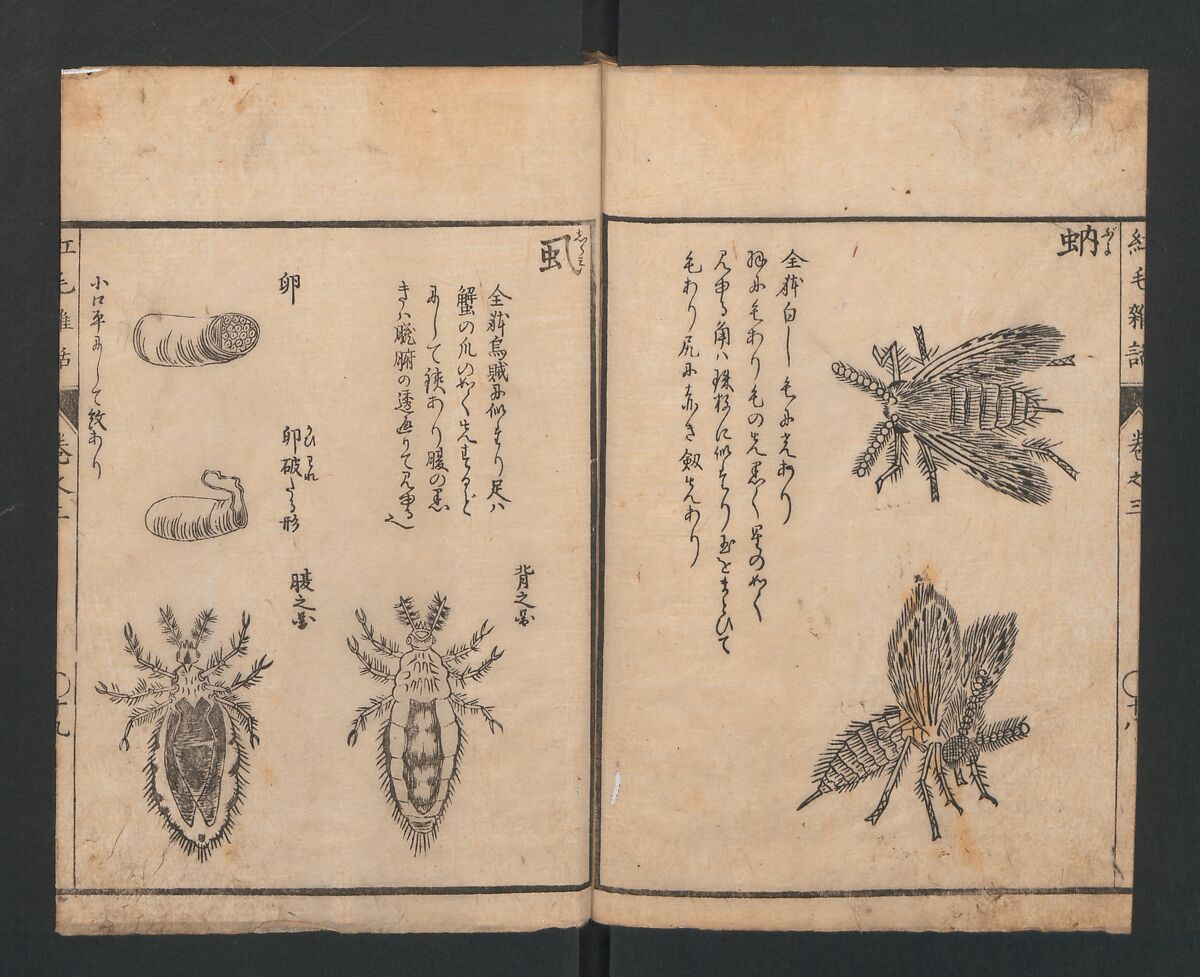 紅毛雜話
卷之三
十八
蚋
ぶよ
全躰白し毛に光あり
羽に毛あり毛の先黒く星の如く
見ゆる角ハ珠数に似たり玉をまとひて
毛あり尻に赤き劔先あり
虱
しらミ
全躰烏賊に似たり足ハ
蟹の爪の如く先するど
にして鋏あり腹の黒
きハ臓腑の透通りて見ゆる也
背之圖
卵
卵破たる形
腹之圖
小口平にして紋あり
紅毛雜話
卷之三
十九